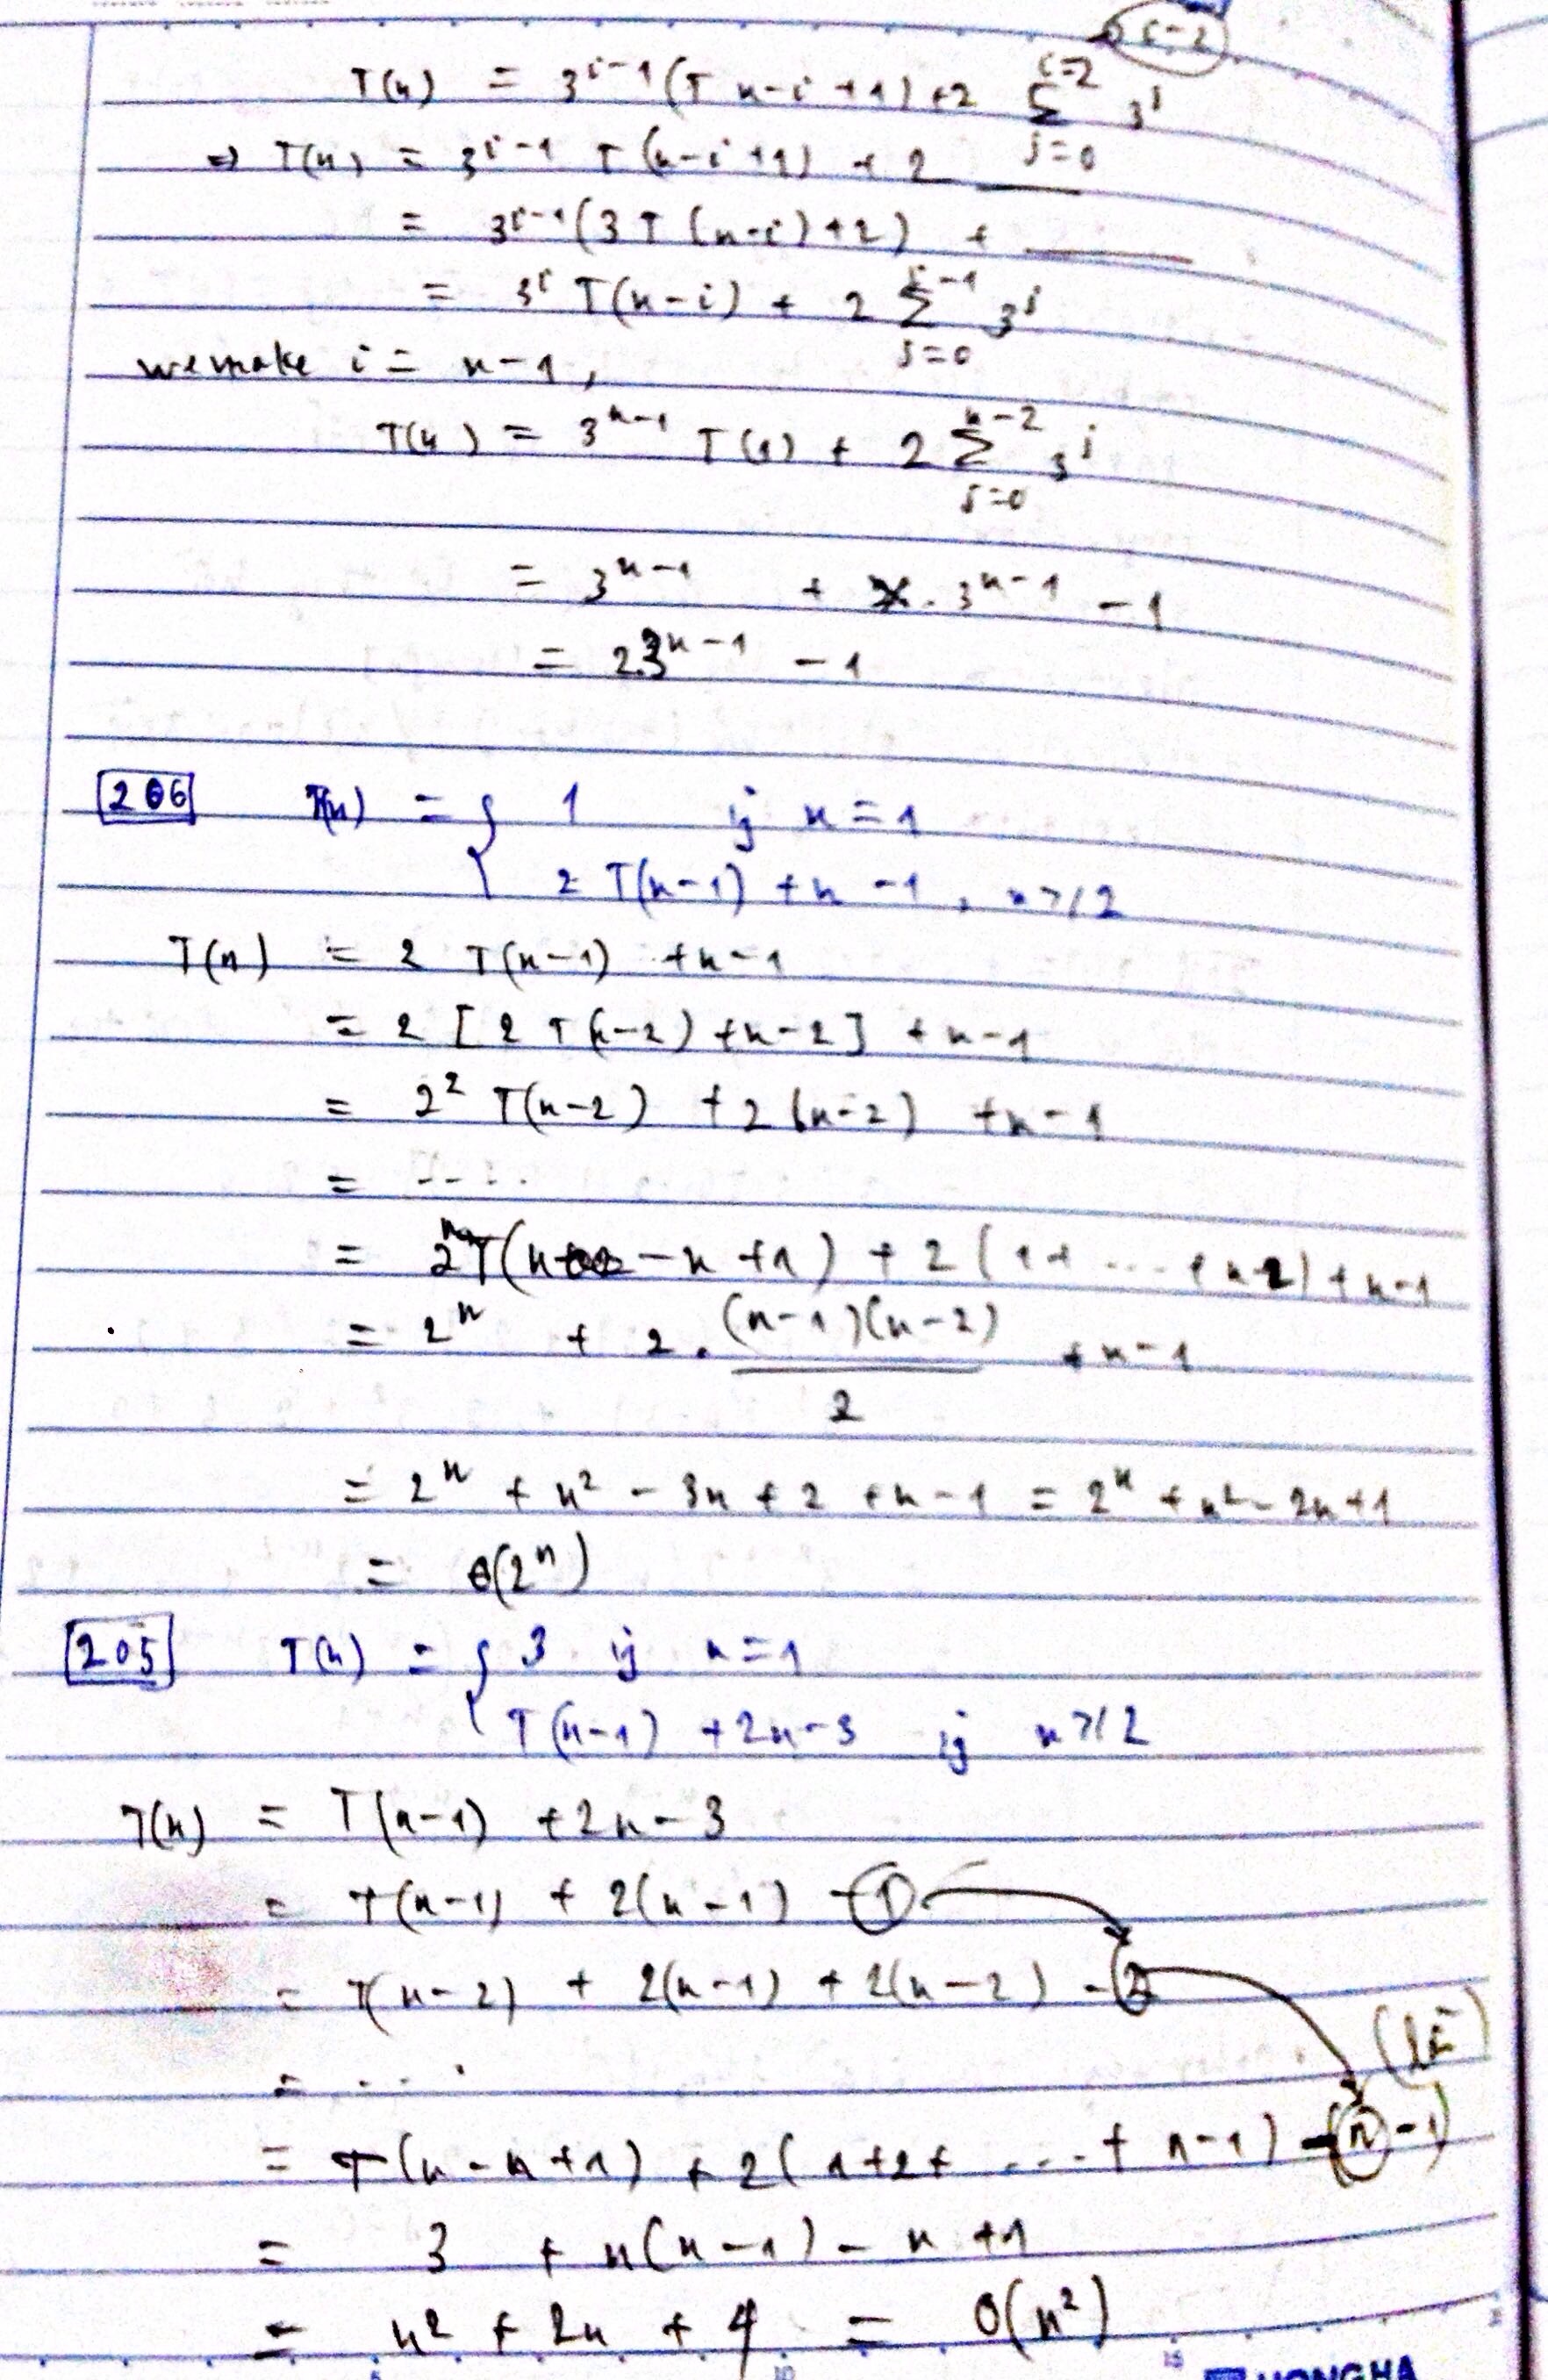 i-2
T(n) = 3^{i-1}(T n-i+1) + 2 \sum_{j=0}^{i=2} 3^j
⇒ T(n) = 3^{i-1} T(n-i+1) + 2 ____
= 3^{i-1}(3T(n-i)+2) + ____
= 3^i T(n-i) + 2 \sum_{j=0}^{i-1} 3^j
we make i = n-1,
T(n) = 3^{n-1} T(1) + 2 \sum_{j=0}^{n-2} 3^j
= 3^{n-1} + 3^{n-1} - 1
= 2.3^{n-1} - 1
206 T(n) = { 1 if n = 1
2 T(n-1) + n - 1, n >/ 2
T(n) = 2 T(n-1) + n-1
= 2 [2 T(n-2) + n-2] + n-1
= 2^2 T(n-2) + 2(n-2) + n-1
= ....
= T(n - n + 1) + 2(1+ ... + n-2) + n-1
= 2^n + 2 . \frac{(n-1)(n-2)}{2} + n-1
= 2^n + n^2 - 3n + 2 + n - 1 = 2^n + n^2 - 2n + 1
= θ(2^n)
205 T(n) = { 3 if n = 1
T(n-1) + 2n-3 if n >/ 2
T(n) = T(n-1) + 2n - 3
= T(n-1) + 2(n-1) - 1
= T(n-2) + 2(n-1) + 2(n-2) - 2
= ....
= T(n-n+1) + 2(1+2+ ... + n-1) - (n-1)
= 3 + n(n-1) - n + 1
= n^2 + 2n + 4 = O(n^2)
5 10 15
HONGHA